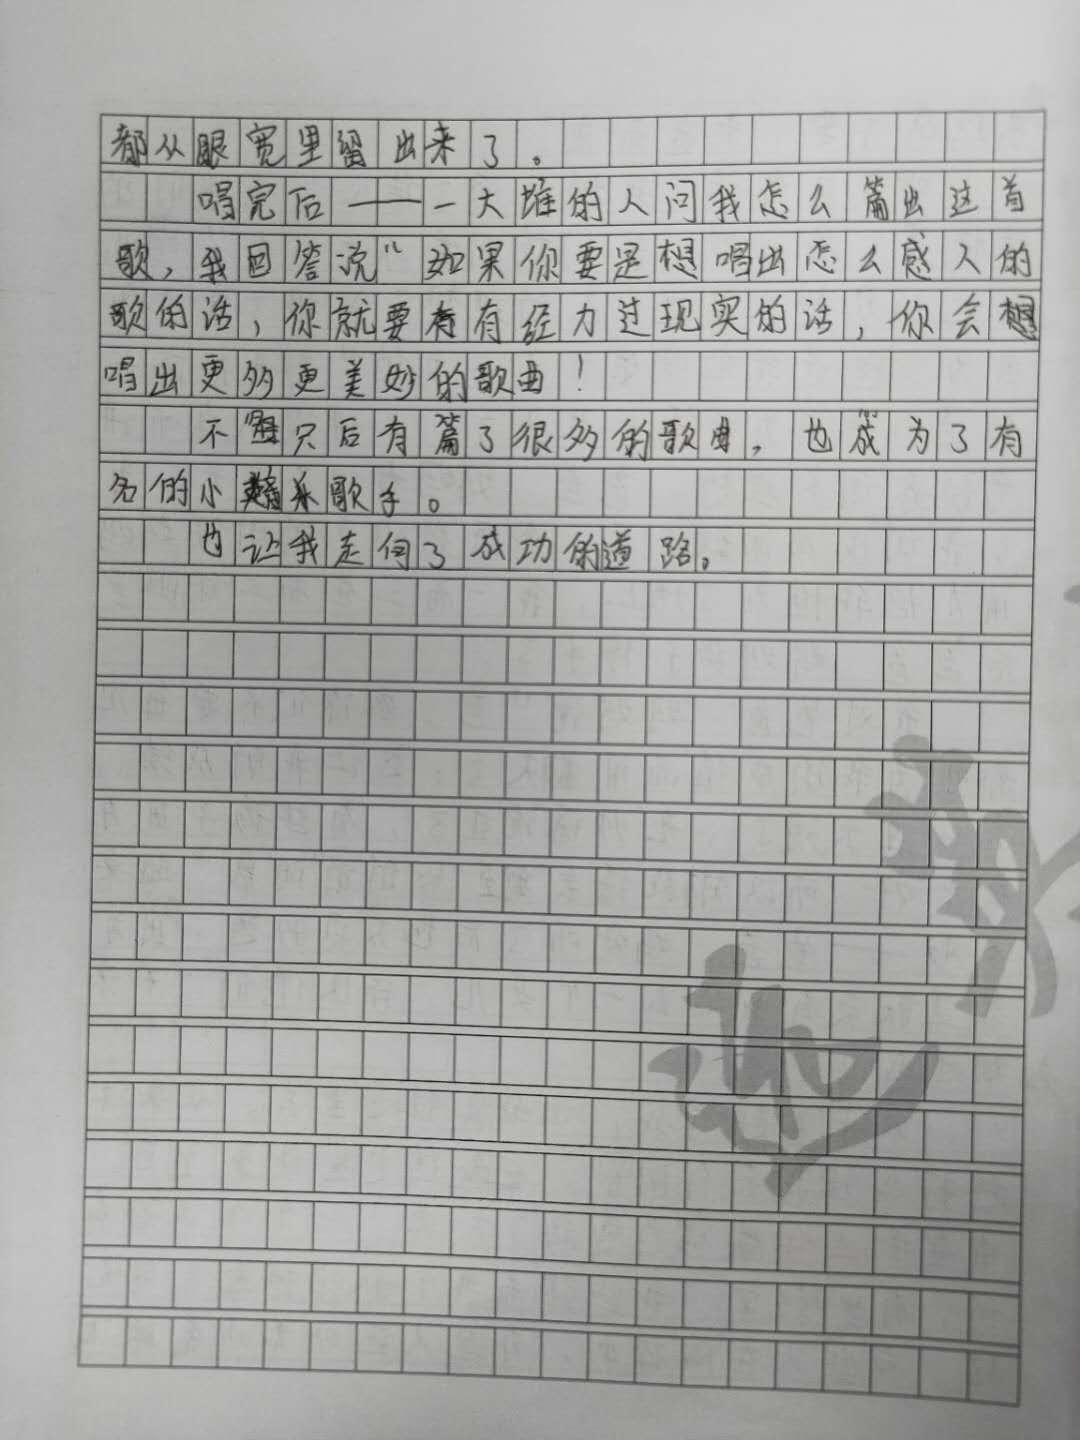 都从眼宽里留出来了。
唱完后——一大堆的人问我怎么篇出这首
歌，我回答说“如果你要是想唱出怎么感人的
歌的话，你就要有有经力过现实的话，你会想
唱出更多更美妙的歌曲！
不只后有篇了很多的歌曲，也成为了有
名的小歌手。
也让我走向了成功的道路。